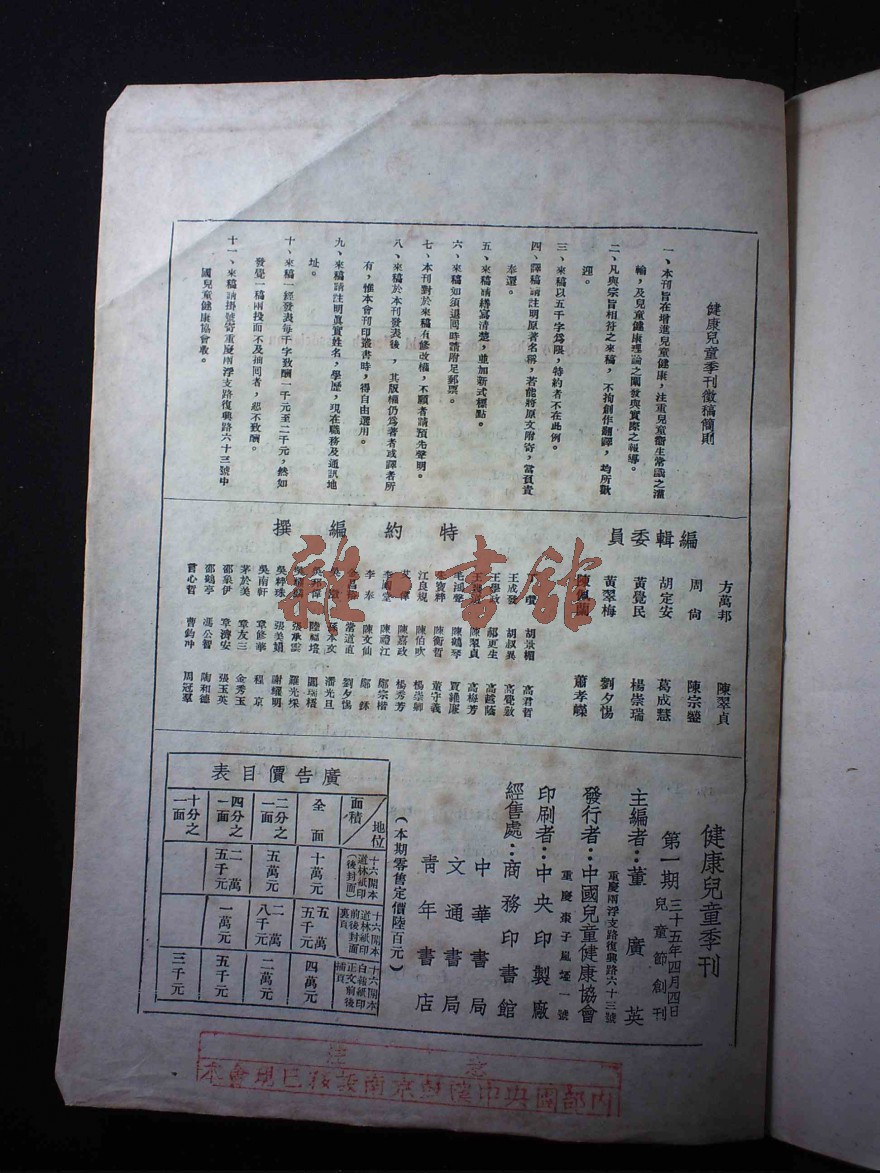 健康兒童季刊徵稿簡則
一、本刊旨在增進兒童健康，注重兒童衞生常識之灌
輸，及兒童健康理論之闡發與實際之報導。
二、凡與宗旨相符之來稿，不拘創作翻譯，均所歡
迎。
三、來稿以五千字爲限，特約者不在此例。
四、譯稿請註明原著名稱，若能將原文附寄，當負責
奉還。
五、來稿請繕寫清楚，並加新式標點。
六、來稿如須退回時請附足郵票。
七、本刊對於來稿有修改權，不願者請預先聲明。
八、來稿於本刊發表後，其版權仍爲著者或譯者所
有，惟本會刊印叢書時，得自由選用。
九、來稿請註明眞實姓名，學歷，現在職務及通訊地
址。
十、來稿一經發表每千字致酬一千元至二千元，然如
發覺一稿兩投而不及抽回者，恕不致酬。
十一、來稿請掛號寄重慶兩浮支路復興路六十三號中
國兒童健康協會收。
編輯委員
方萬邦 陳翠貞
周尙 陳宗鎣
胡定安 葛成慧
黃覺民 楊崇瑞
黃翠梅 劉夕惕
陳佩蘭 蕭孝嶸
特約編撰
胡景楣 高君哲
王成發 胡叔異 高覺敷
王學政 郝更生 高越蔭
陳翠貞 高梅芳
毛鴻聲 陳鶴琴 賈維廉
朱寶粹 陳衡哲 董守義
江良規 陳伯吹 楊崇卿
艾偉 陳嘉政 楊秀芳
李廟堂 陳禮江 鄢宗楷
李泰 陳文仙 鄢烋
常道直 劉夕惕
吳章 孫本文 潘光旦
吳邦偉 陸福培 閻瑞梧
張承雲 羅光埰
吳粹珠 張美娟 謝耀明
吳南軒 章修華 程京
茅於美 章友三 金秀玉
邵泉伊 章濟安 張玉英
邵鶴亭 馮公智 陶和德
曹心哲 曹鈞冲 周冠羣
健康兒童季刊
第一期 三十五年四月四日
兒童節創刊
主編者：董廣英
重慶兩浮支路復興路六十三號
發行者：中國兒童健康協會
印刷者：中央印製廠
重慶棗子嵐埡一號
經售處：商務印書館
中華書局
文通書局
青年書店
（本期零售定價陸百元）
廣告價目表
地位 面積 全面 二分之一面 四分之一面 十分之一面
十六開本道林紙印（後封面） 十萬元 五萬元 二萬五千元
十六開本道林紙印前後封面裏頁 五萬五千元 二萬八千元 一萬元
十六開本白報紙印正文前後插頁 四萬元 二萬元 五千元 三千元
注意
內部國央中院
南京
本會現已
雜·書館